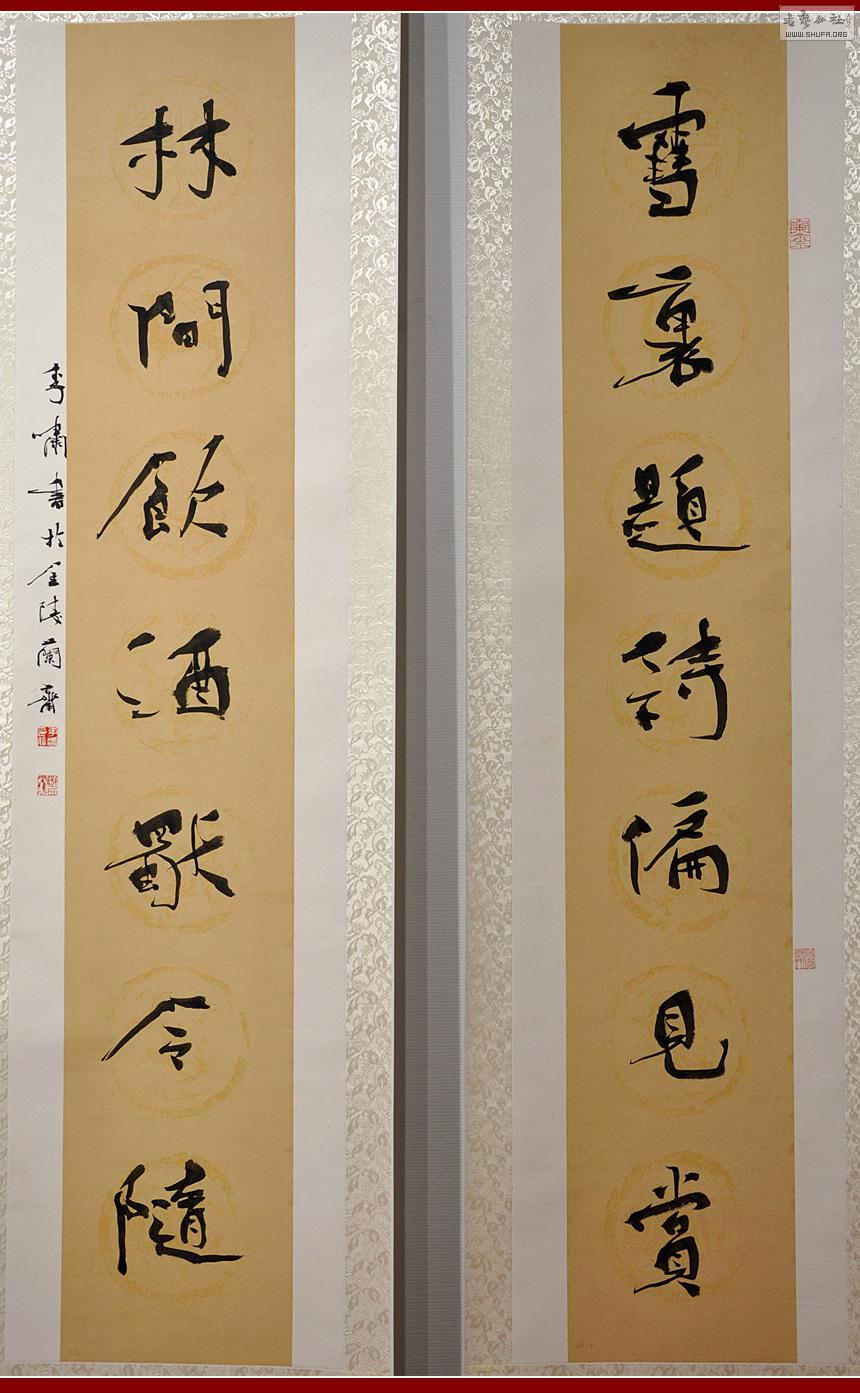 雪裏題詩偏見賞
林間飲酒獨令隨
李嘯書於金陵蘭齋
書藝公社
WWW.SHUFA.ORG